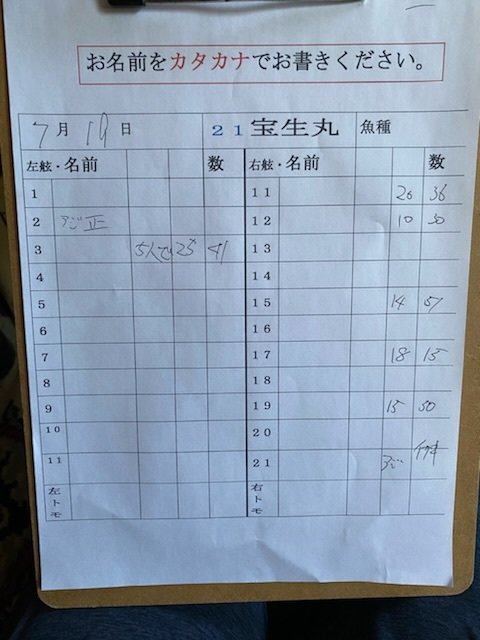 お名前をカタカナでお書きください。
7月19日 21宝生丸 魚種
左舷・名前 数 右舷・名前 数
1 11 20 36
2 アジ 正 12 10 30
3 5人で25 41 13
4 14
5 15 14 51
6 16
7 17 18 15
8 18
9 19 15 50
10 20
11 21
左トモ 右トモ